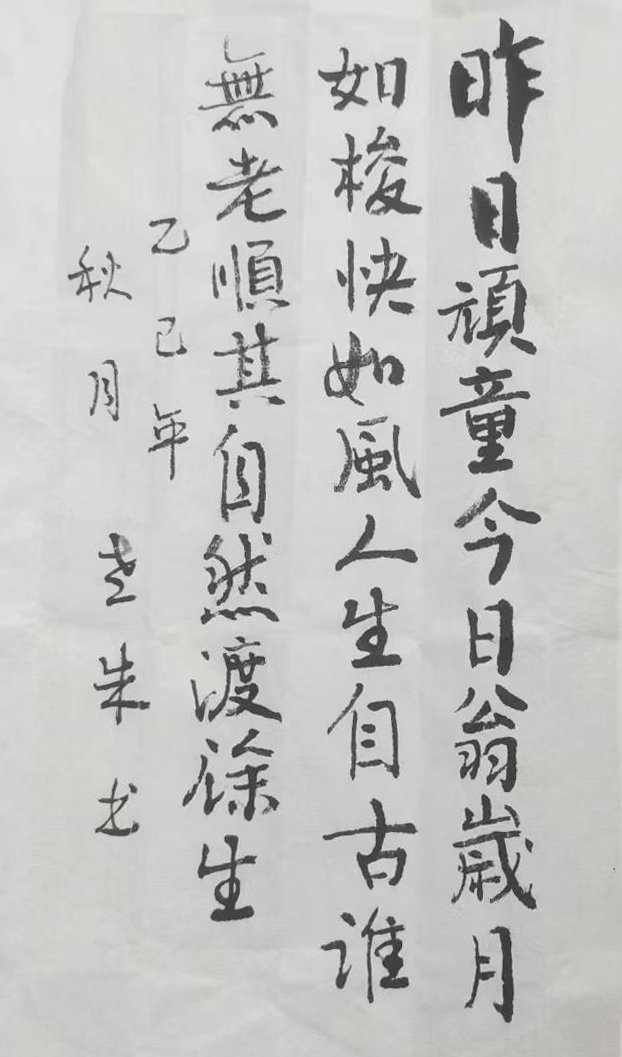 昨日頑童今日翁歲月
如梭快如風人生自古誰
無老順其自然渡餘生
乙巳年
秋月 老朱书